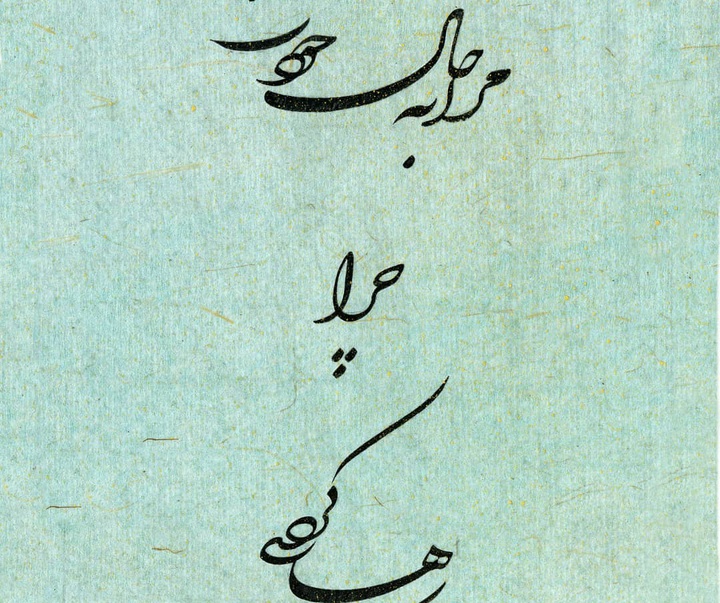 مرا به حال خود
چرا
رها کردی